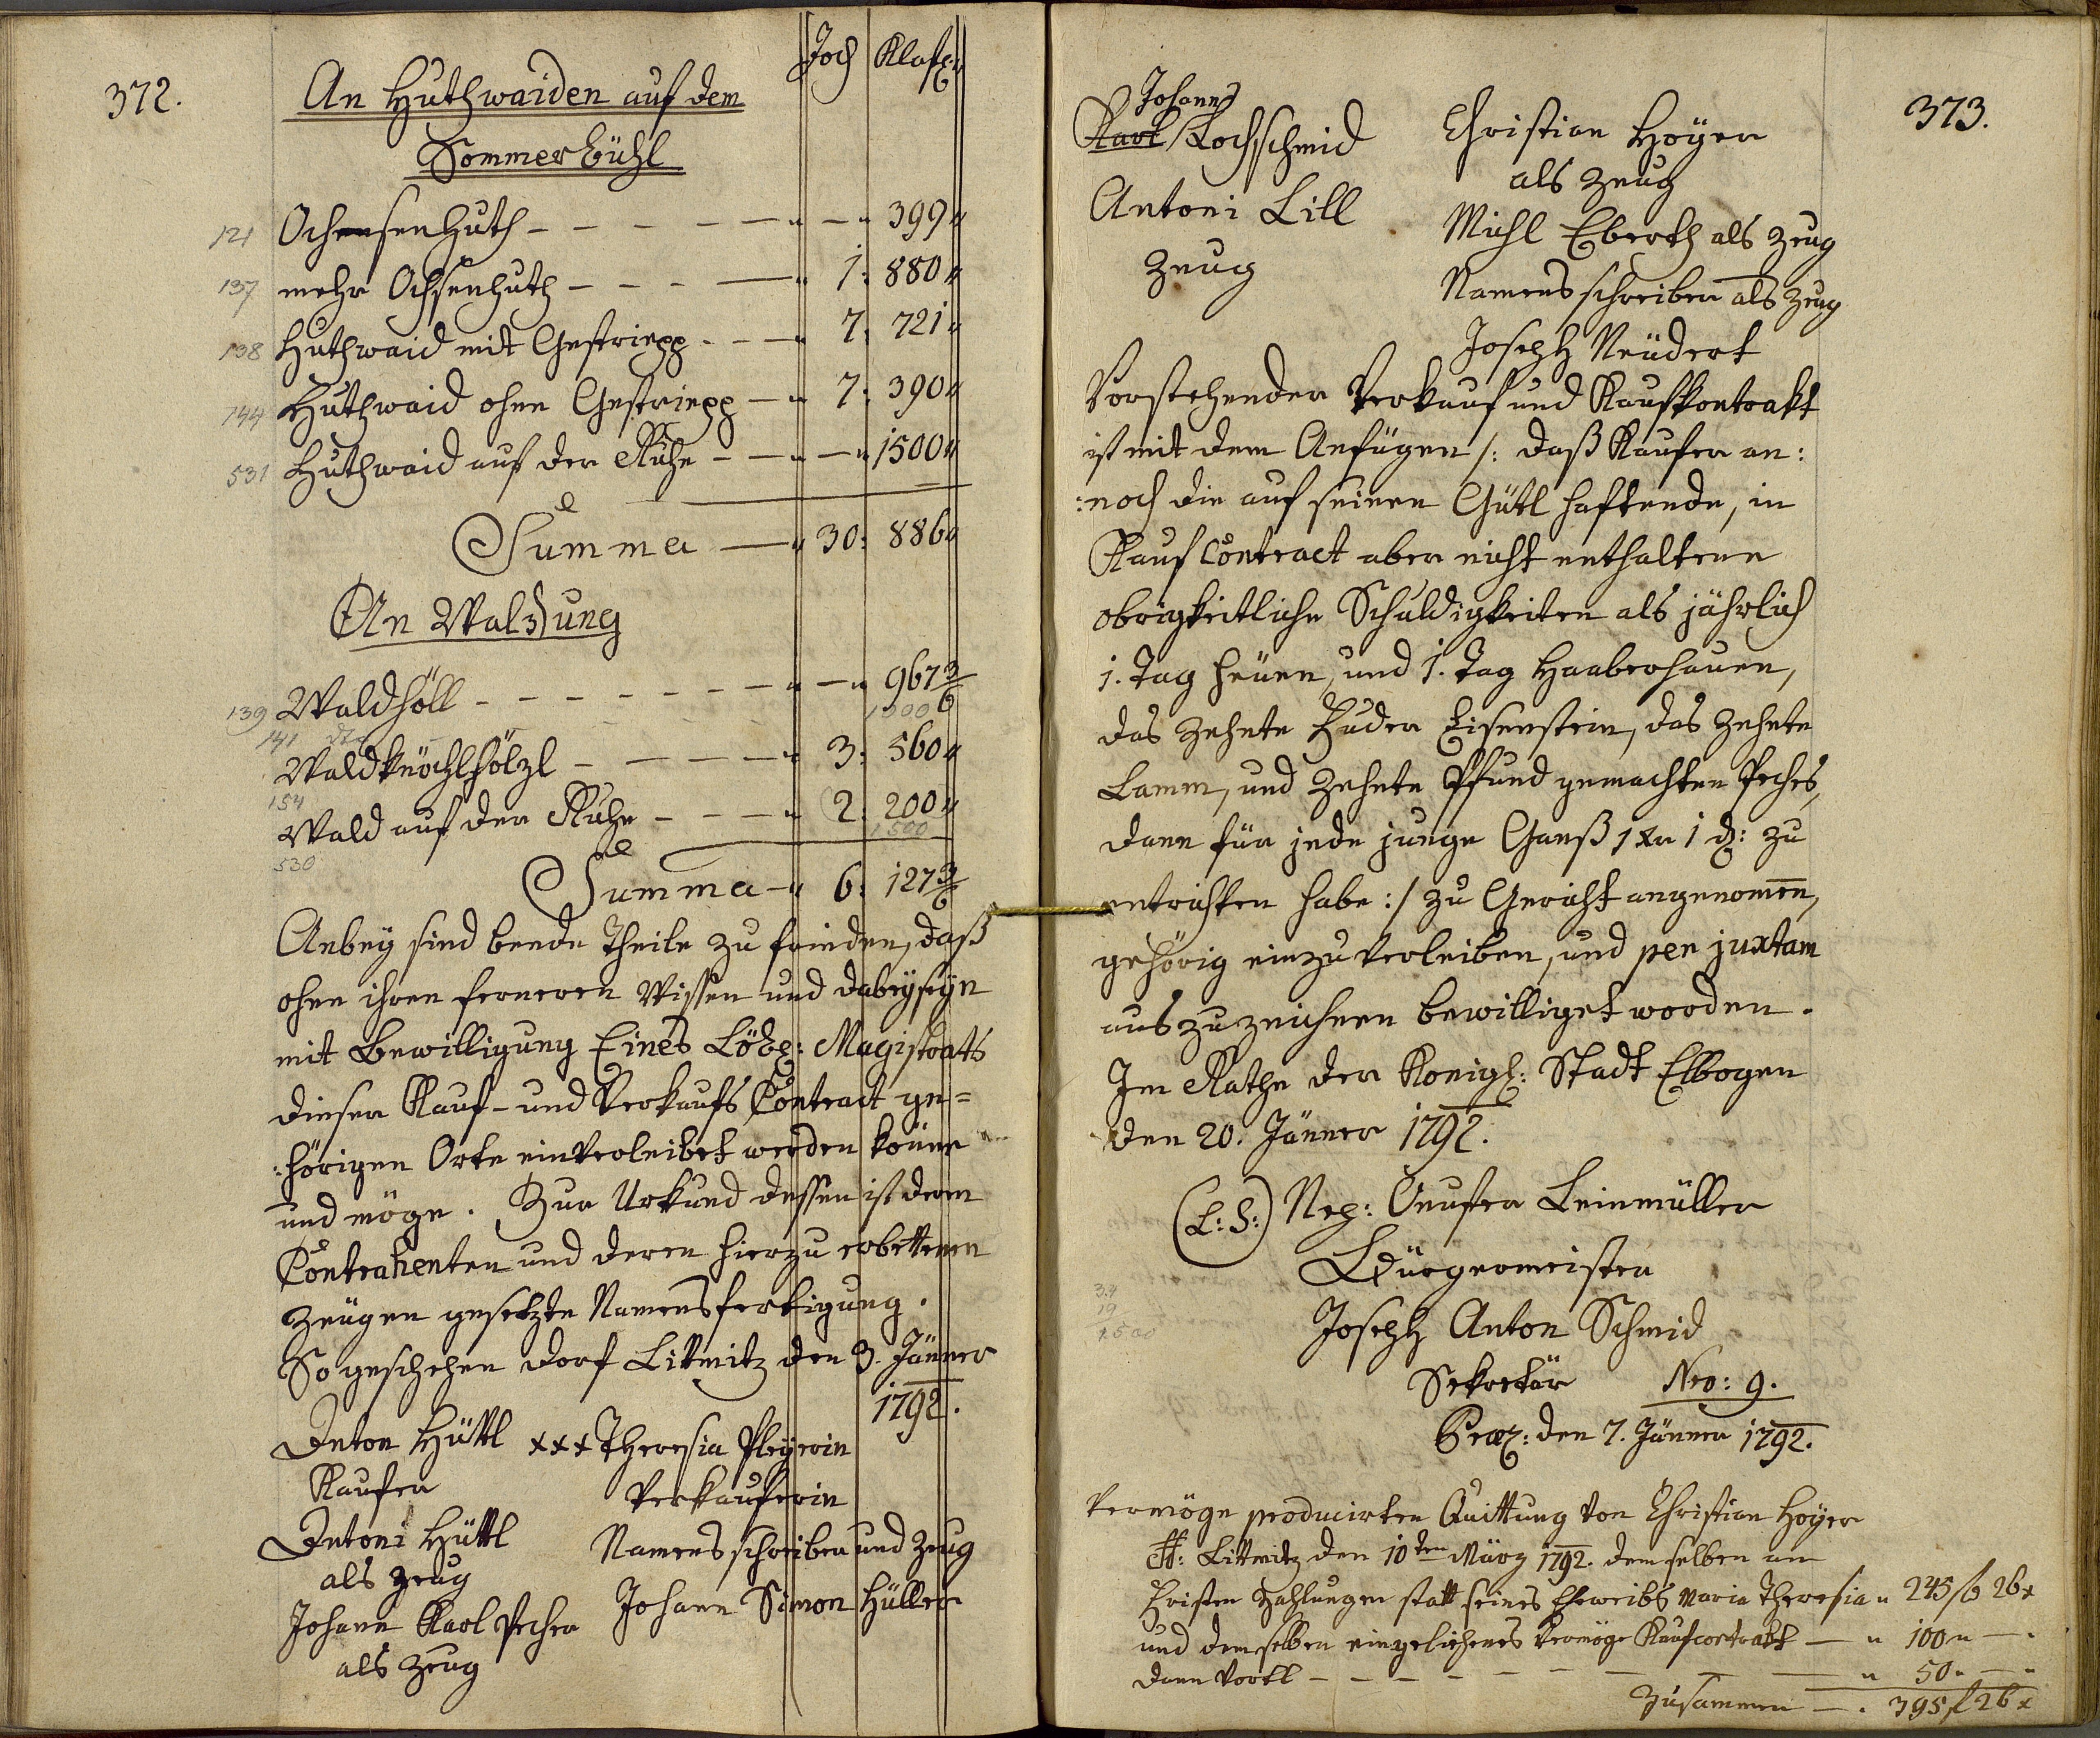 372.
Joch Klaft:
An Huthwaiden auf dem
Sommerbühl
121 Ochsensenhuth - - - - - „ - „ 399 „
137 mehr Ochsenhuth - - - - „ 1: 880 „
138 Huthwaid mit Gestriepp - - - „ 7: 721 „
144 Huthwaid ohne Gestriepp - „ 7: 390 „
531 Huthwaid auf der Ruhe - - „ - „ 1500 „
Summa - „ 30: 886 „
An Waldung
139 Waldhöll - - - - - - „ - „ 967 3/6
141 dto 1300
Waldknöchlhölzl - - - - „ 3: 560 „
154
Wald auf der Ruhe - - - „ 2: 200 „
530 1500
Summa - „ 6: 127 3/6
Anbey sind beede Theile zu frieden, daß
ohne ihren ferneren Wissen und dabeyseyn
mit Bewilligung Eines Löbl: Magistrats
dieser Kauf- und Verkaufs Contract ge=
:hörigen Orte einverleibet werden könne
und möge. Zur Urkund dessen ist deren
Contrahenten und deren hierzu erbettenen
Zeugen gesetzte Namensfertigung.
So geschehen Dorf Littmitz den 3. Jänner
1792.
Anton Hüttl xxx Theresia Pleyerin
Kaufer Verkauferin
Antoni Hüttl Namensschreiber und Zeug
als Zeug
Johann Karl Pecher Johann Simon Hüller
als Zeug
373.
Johann
Karl Kochschmid Christian Hoyer
als Zeug
Antoni Lill Michl Eberth als Zeug
Zeug Namensschreiber als Zeug
Joseph Neudert
Vorstehender Verkauf und Kaufkontrakt
ist mit dem Anfügen /: daß Kaufer an:
:noch die auf seinen Gütl haftende, in
Kauf Contract aber nicht enthaltene
obrigkeitliche Schuldigkeiten als jährlich
1. Tag heuen, und 1. Tag Haaberhauen,
das zehnte Fuder Eisenstein, das zehnte
Lamm, und zehnte Pfund gemachten Peches,
dann für jede junge Ganß 1 xr 1 d: zu
entrichten habe :/ zu Gericht angenomen,
gehörig einzuverleiben, und per juxtam
auszuzeichnen bewilliget worden.
Im Rathe der Königl: Stadt Elbogen
den 20. Jänner 1792.
(L: S:) Nep: Onufer Leinmüller
Bürgermeister
34
19
1500
Joseph Anton Schmid
Sekretär Nro: 9.
Praes: den 7. Jänner 1792.
Vermöge producirten Quittung von Christian Hoyer
Littmitz den 10ten März 1792. demselben am
Fristen Zahlungen statt seines Eheweibs Maria Theresia „ 245 f 26 x
und demselben eingeliehenes vermöge Kaufcontrakt - „ 100 „ - „
dann - - - - - - - „ 50 „ - „
Zusammen - „ 395 f 26 x